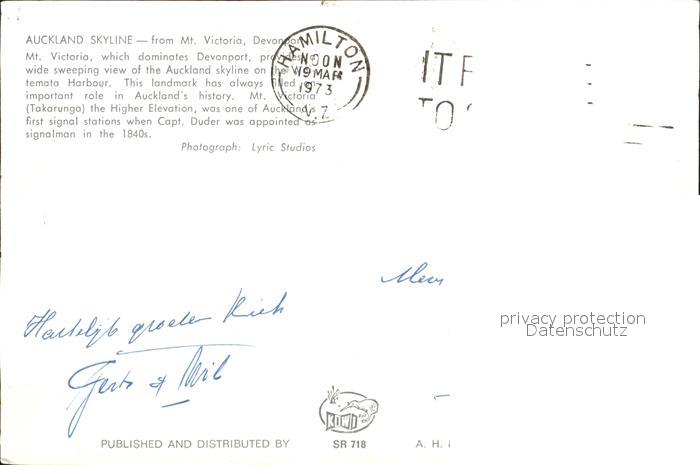 AUCKLAND SKYLINE — from Mt. Victoria, Devonport
Mt. Victoria, which dominates Devonport,
wide sweeping view of the Auckland skyline on the
temata Harbour. This landmark has always
important role in Auckland's history. Mt. Victoria
(Takarunga) the Higher Elevation, was one of Auckland's
first signal stations when Capt. Duder was appointed as
signalman in the 1840s.
Photograph: Lyric Studios
HAMILTON
NOON
19 MAR
1973
N.Z.
ITF
TO
Hartelijk groeten
privacy protection
Datenschutz
KIWI
PUBLISHED AND DISTRIBUTED BY SR 718 A. H.